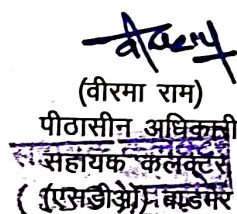 (वीरमा राम)
पीठासीन अधिकारी
सहायक कलक्टर
(एसडीओ) बाडमेर